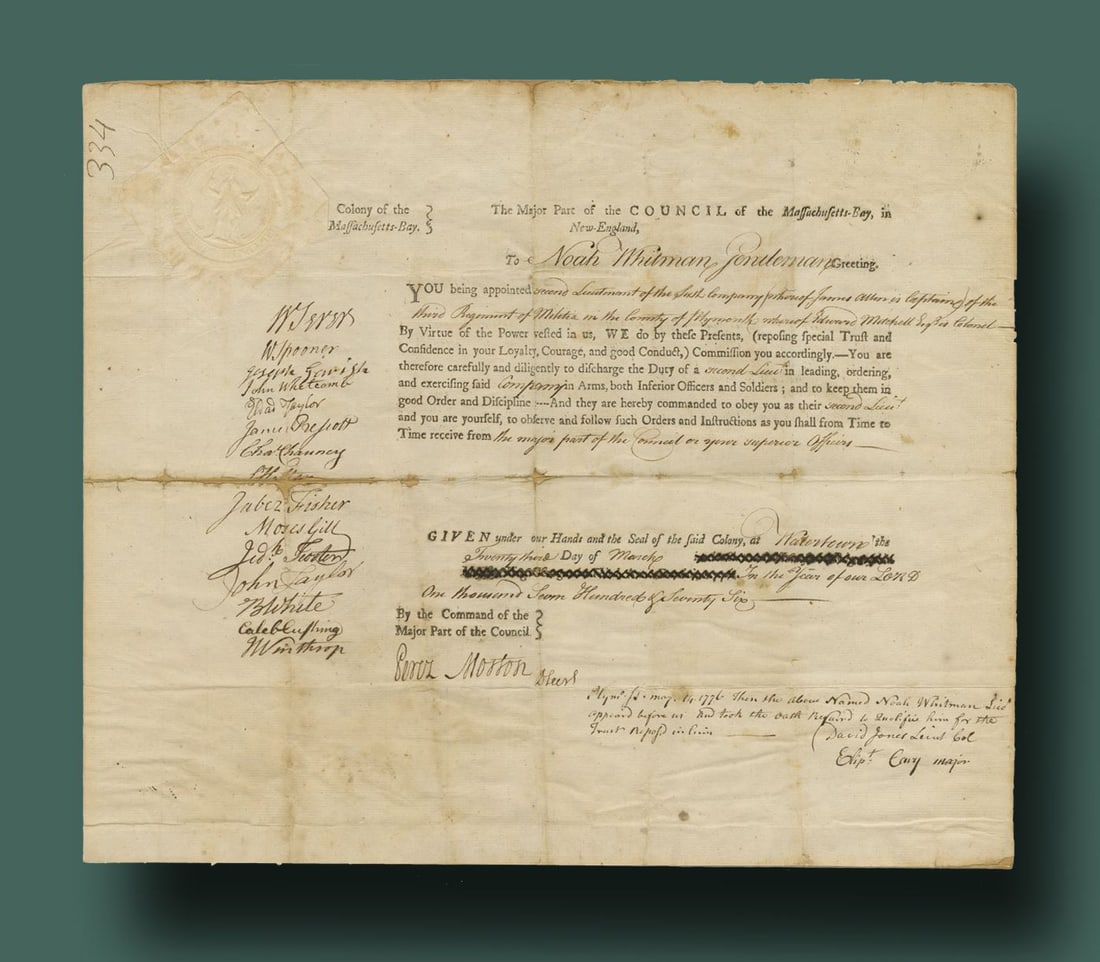 334
Colony of the
Massachusetts-Bay.
The Major Part of the COUNCIL of the Massachusetts-Bay, in
New-England,
To Noah Whitman Gentleman Greeting.
YOU being appointed second Lieutenant of the Sixth Company (whereof James Allen is Captain) of the
third Regiment of Militia in the County of Plymouth whereof Edward Mitchell Esqr is Colonel
By Virtue of the Power vested in us, WE do by these Presents, (reposing special Trust and
Confidence in your Loyalty, Courage, and good Conduct,) Commission you accordingly.—You are
therefore carefully and diligently to discharge the Duty of a second Lieut in leading, ordering,
and exercising said Company in Arms, both Inferior Officers and Soldiers; and to keep them in
good Order and Discipline:—And they are hereby commanded to obey you as their second Lieut
and you are yourself, to observe and follow such Orders and Instructions as you shall from Time to
Time receive from the major part of the Council or your superior Officers
GIVEN under our Hands and the Seal of the said Colony, at Watertown the
Twenty third Day of March
In the Year of our LORD
One thousand Seven Hundred & Seventy Six
By the Command of the
Major Part of the Council
Perez Morton D Secry
W Sever
W Spooner
Joseph Gerrish
John Whitcomb
Eldad Taylor
James Prescott
Chas Chauncy
Jabez Fisher
Moses Gill
Jedh Foster
John Taylor
B White
Caleb Cushing
J Winthrop
Plymo Ss. may. 14. 1776 Then the above Named Noah Whitman
appeard before us and took the oath Requird to Qualifie him for the
Trust Reposd in him
David Jones Lieut Col
Elipt Cary major